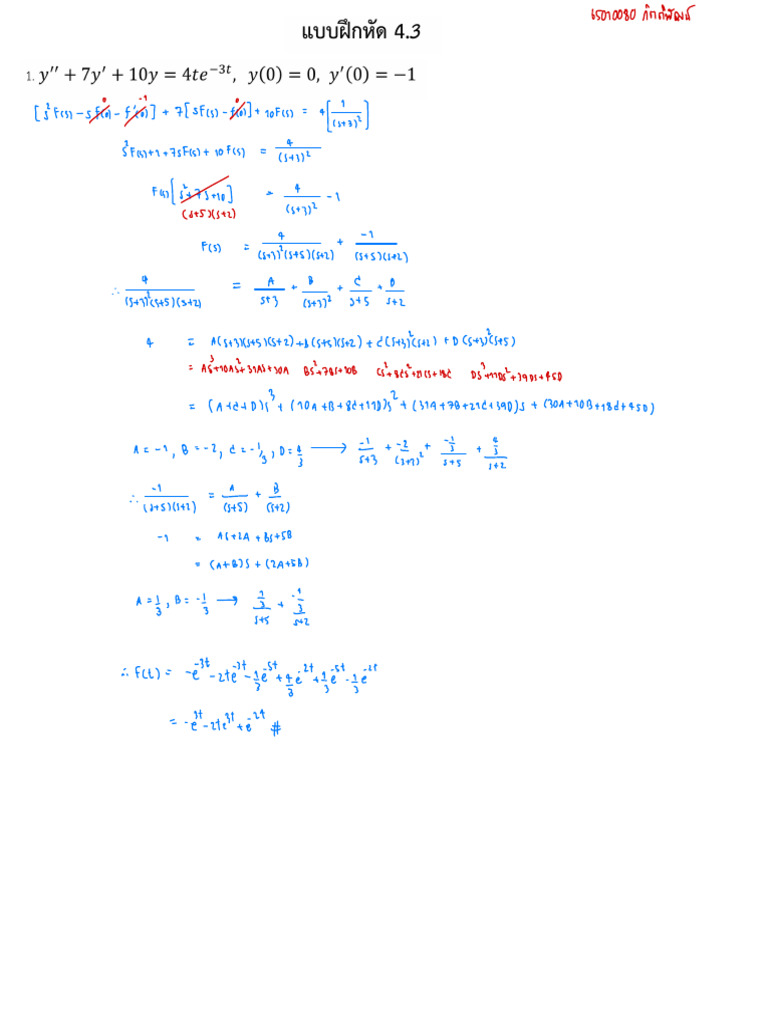 65010080 กิตติพัฒน์
แบบฝึกหัด 4.3
1. y′′ + 7y′ + 10y = 4te^{−3t}, y(0) = 0, y′(0) = −1
[s²F(s) − s f(0) − f'(0)] + 7[sF(s) − f(0)] + 10F(s) = 4[1/(s+3)²]
0 -1 0
s²F(s)+1+7sF(s)+10F(s) = 4/(s+3)²
F(s)[s²+7s+10] = 4/(s+3)² −1
(s+5)(s+2)
F(s) = 4/(s+3)²(s+5)(s+2) + -1/(s+5)(s+2)
∴ 4/(s+3)²(s+5)(s+2) = A/s+3 + B/(s+3)² + C/s+5 + D/s+2
4 = A(s+3)(s+5)(s+2)+B(s+5)(s+2)+C(s+3)²(s+2)+D(s+3)²(s+5)
= As³+10As²+31As+30A Bs²+7Bs+10B Cs³+8Cs²+21Cs+18C Ds³+11Ds²+39Ds+45D
= (A+C+D)s³+(10A+B+8C+11D)s²+(31A+7B+21C+39D)s+(30A+10B+18C+45D)
A=-1, B=-2, C=-1/3, D=4/3 → -1/s+3 + -2/(s+3)² + -1/3/s+5 + 4/3/s+2
∴ -1/(s+5)(s+2) = A/(s+5) + B/(s+2)
-1 = As+2A+Bs+5B
= (A+B)s+(2A+5B)
A=1/3, B=-1/3 → 1/3/s+5 + -1/3/s+2
∴ F(t) = -e^{-3t}-2te^{-3t}-1/3e^{-5t}+4/3e^{-2t}+1/3e^{-5t}-1/3e^{-2t}
= -e^{-3t}-2te^{-3t}+e^{-2t} #